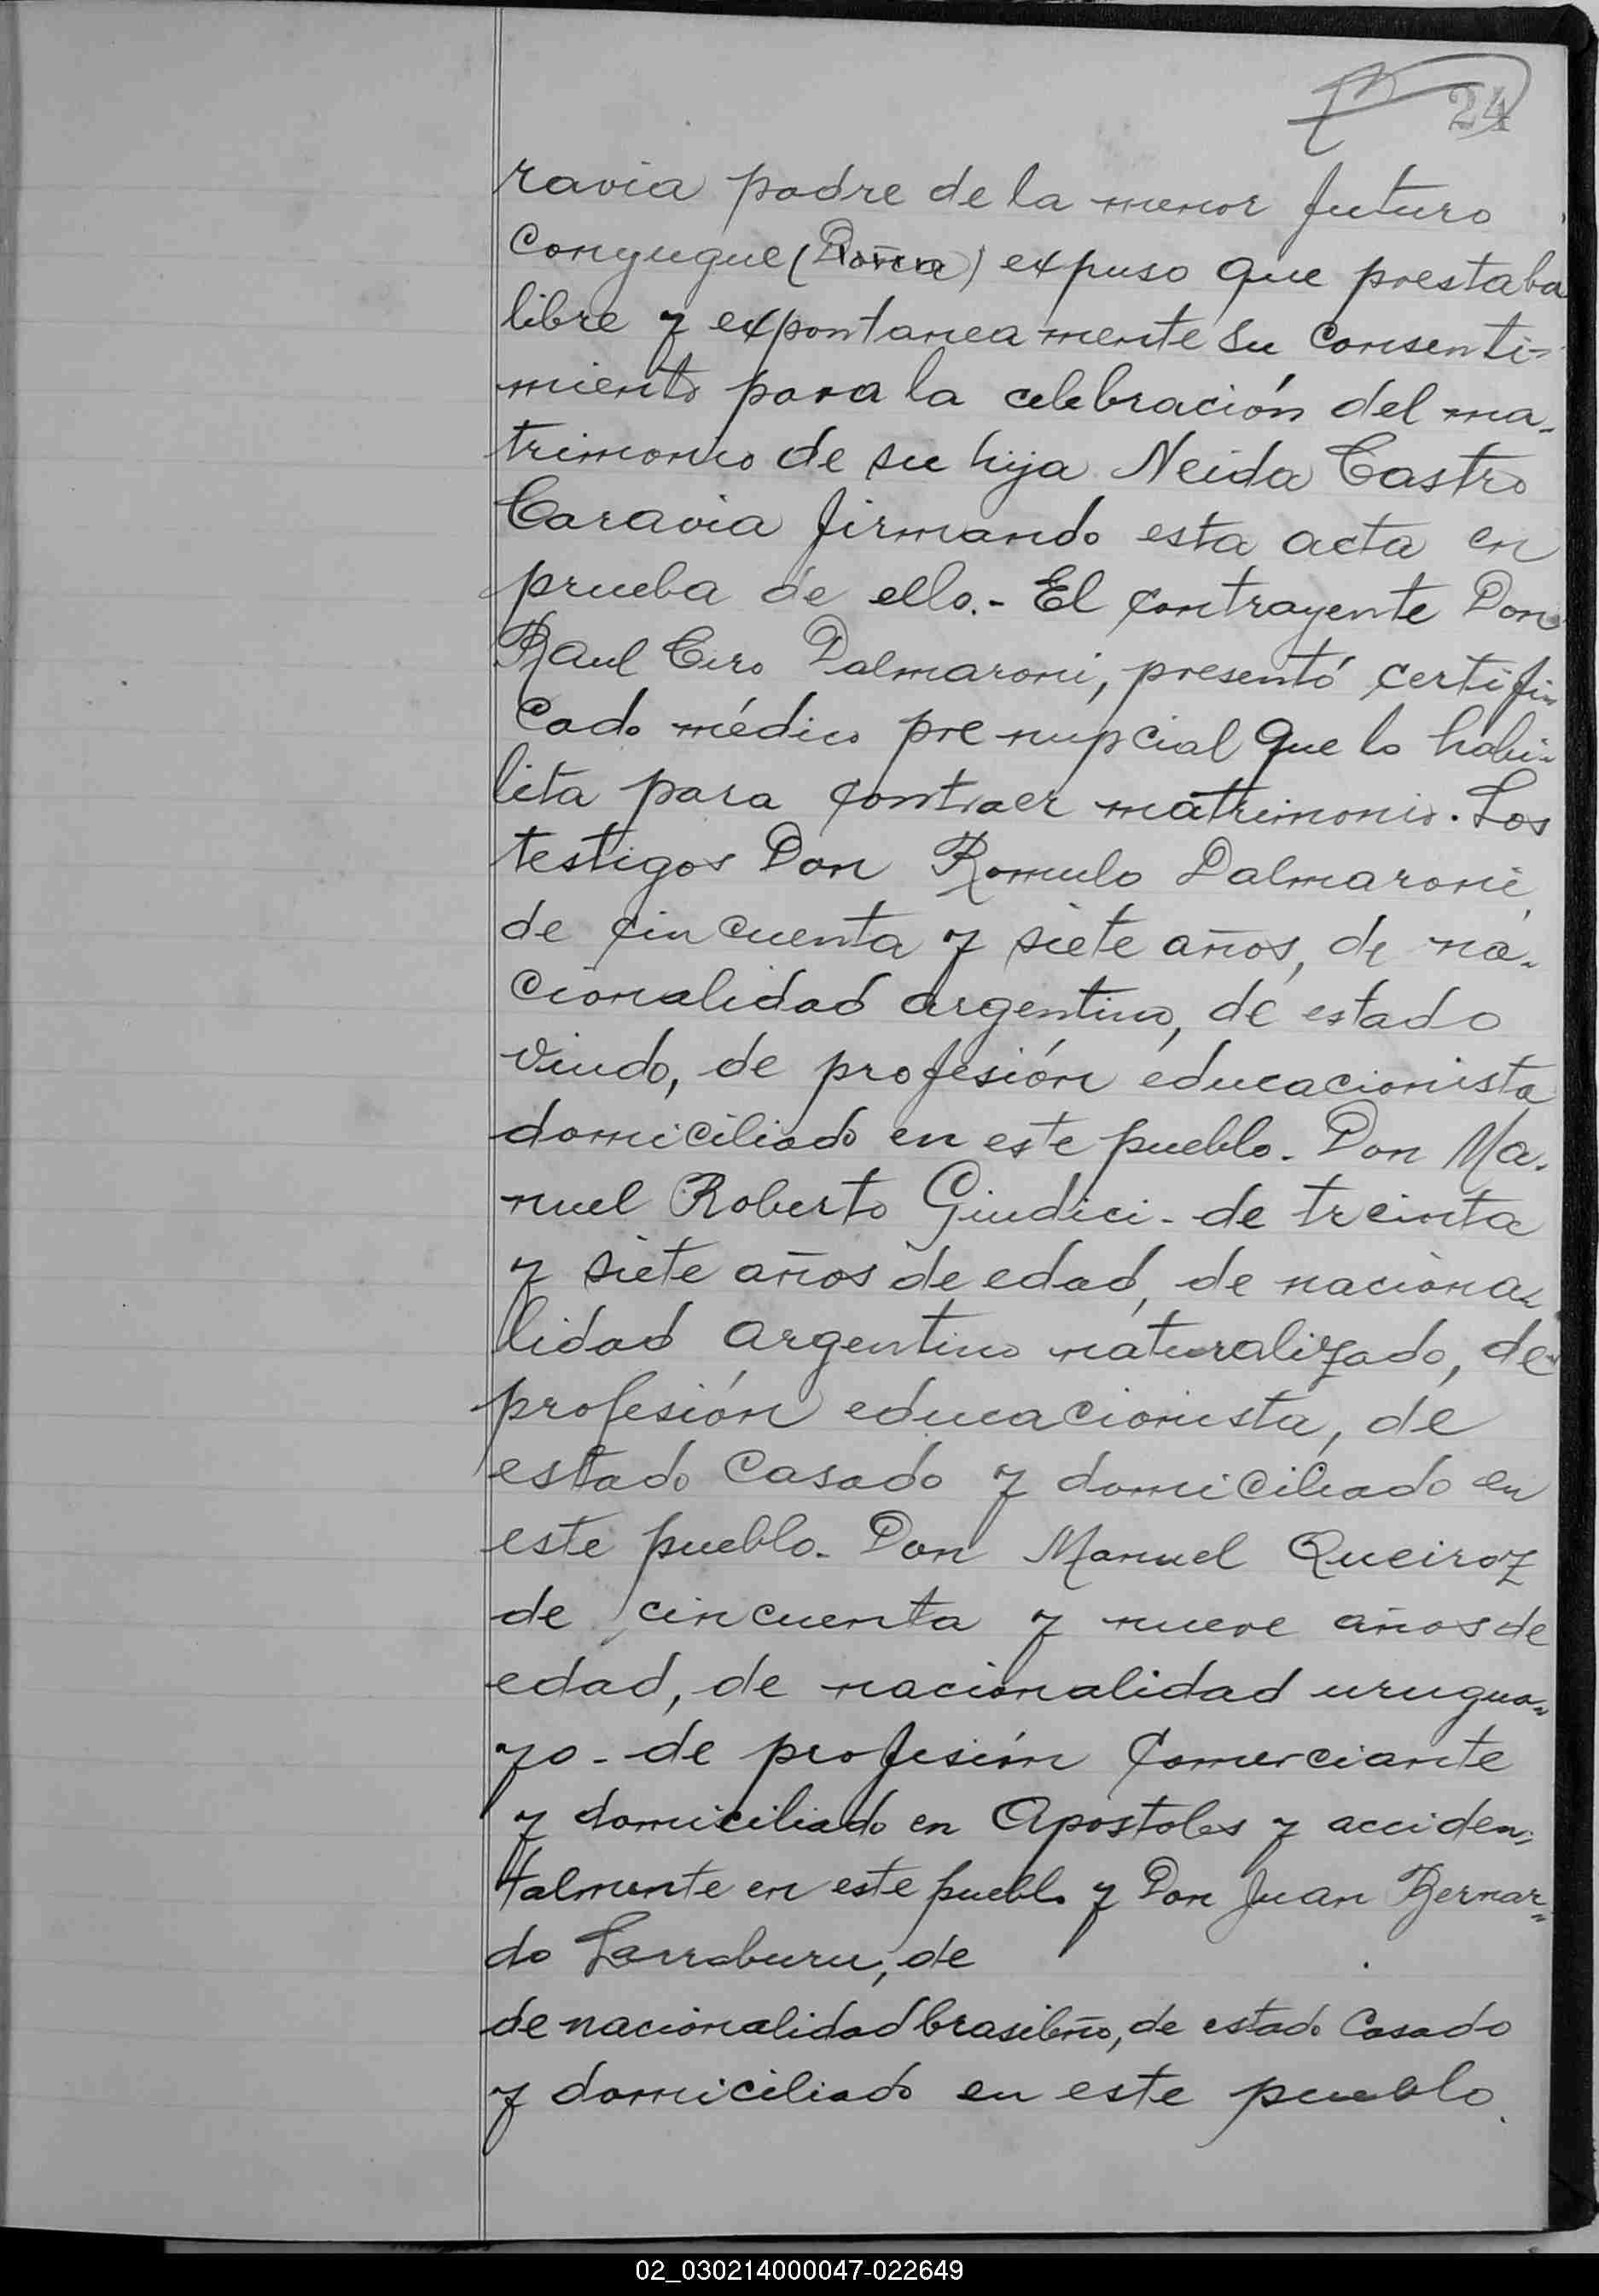 24
ravia padre de la menor futuro
conyugue (Doña) expuso que prestaba
libre y expontaneamente su consenti-
miento para la celebración del ma-
trimonio de su hija Neida Castro
Caravia firmando esta acta en
prueba de ello.- El contrayente Don
Raul Ciro Dalmaroni, presentó certifi-
cado médico prenupcial que lo habi-
lita para contraer matrimonio. Los
testigos Don Romulo Dalmaroni,
de cincuenta y siete años, de na-
cionalidad argentino, de estado
viudo, de profesión educacionista
domiciliado en este pueblo. Don Ma-
nuel Roberto Giudici - de treinta
y siete años de edad, de naciona-
lidad argentino naturalizado, de
profesión educacionista, de
estado casado y domiciliado en
este pueblo. Don Manuel Queiroz
de cincuenta y nueve años de
edad, de nacionalidad urugua-
yo - de profesión comerciante
y domiciliado en Apostoles y acciden-
talmente en este pueblo y Don Juan Bernar-
do Larraburu, de
de nacionalidad brasileño, de estado casado
y domiciliado en este pueblo.
02_030214000047-022649